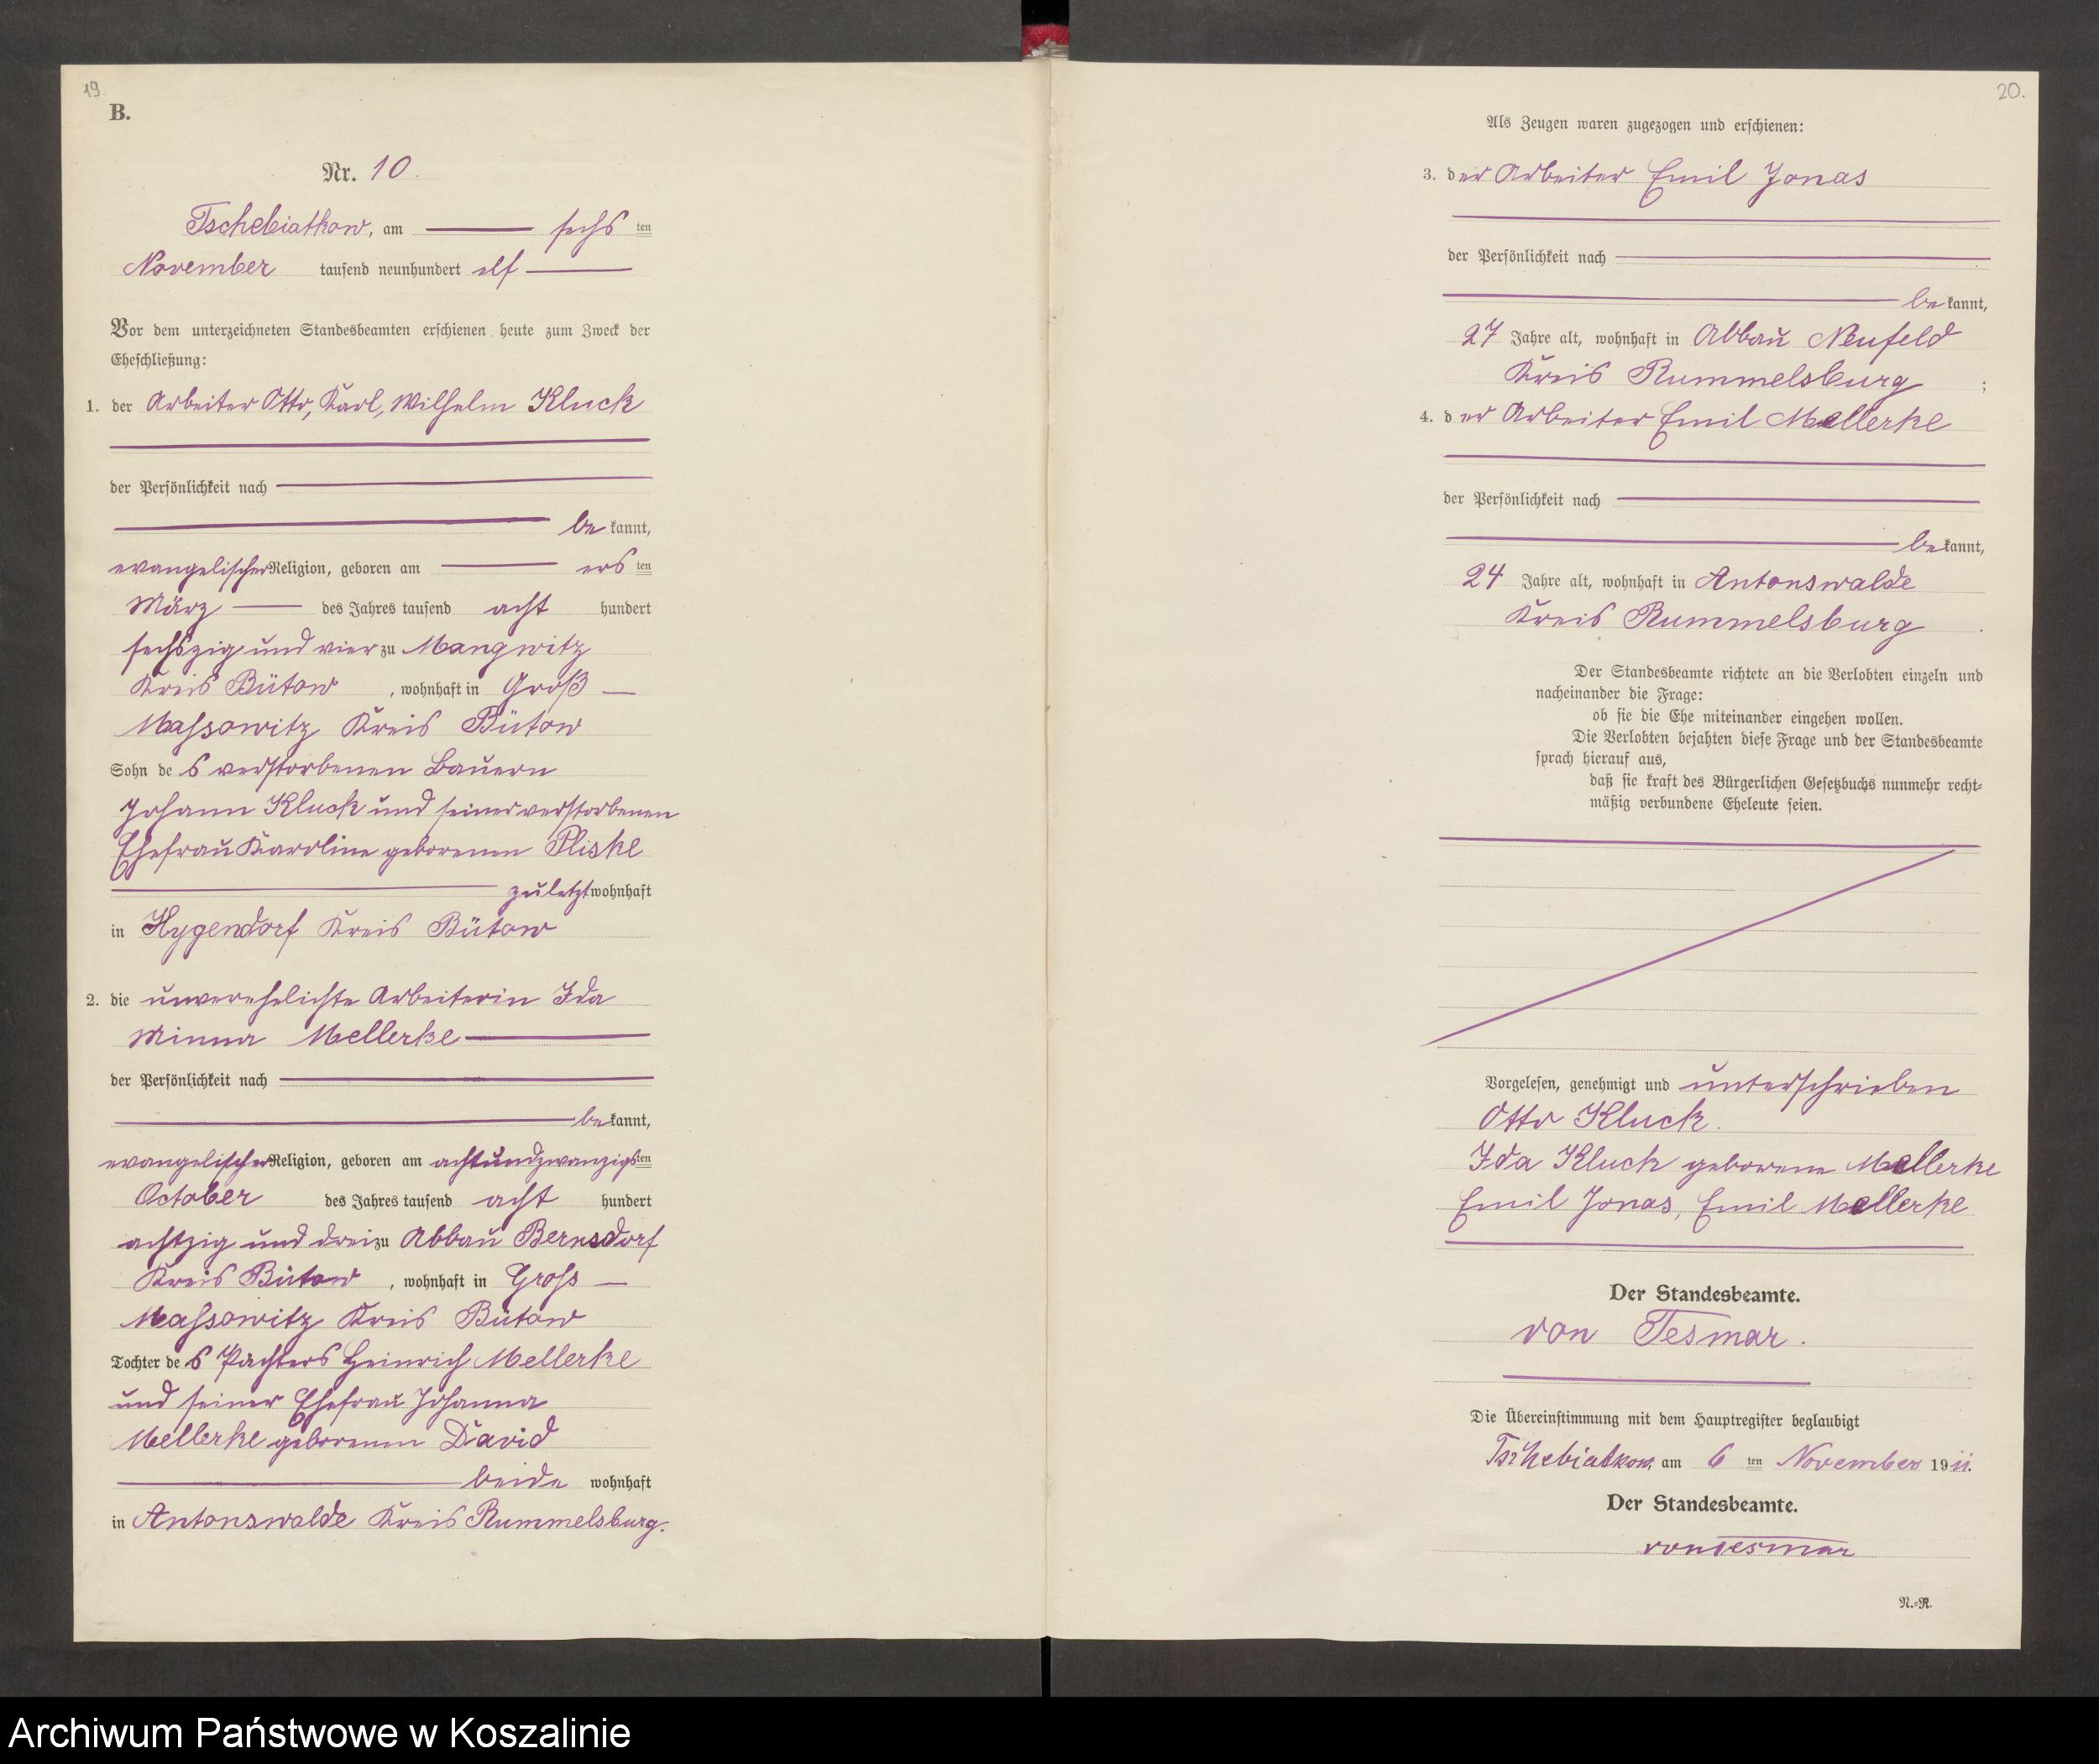 19
B.
Nr. 10.
Tschebiatkow, am sechs ten
November tausend neunhundert elf
Vor dem unterzeichneten Standesbeamten erschienen heute zum Zweck der
Eheschließung:
1. der Arbeiter Otto, Karl, Wilhelm Kluck
der Persönlichkeit nach
be kannt,
evangelischer Religion, geboren am ers ten
März des Jahres tausend acht hundert
sechszig und vier zu Mangwitz
Kreis Bütow, wohnhaft in Groß
Massowitz Kreis Bütow
Sohn des verstorbenen Bauern
Johann Kluck und seiner verstorbenen
Ehefrau Karoline geborenen Pliske
zuletzt wohnhaft
in Hygendorf Kreis Bütow
2. die unverehelichte Arbeiterin Ida
Minna Mellerke
der Persönlichkeit nach
be kannt,
evangelischer Religion, geboren am achtundzwanzigsten
October des Jahres tausend acht hundert
achtzig und drei zu Abbau Bernsdorf
Kreis Bütow, wohnhaft in Gross
Massowitz Kreis Bütow
Tochter des Pächters Heinrich Mellerke
und seiner Ehefrau Johanna
Mellerke geborenen David
beide wohnhaft
in Antonswalde Kreis Rummelsburg.
20.
Als Zeugen waren zugezogen und erschienen:
3. der Arbeiter Emil Jonas
der Persönlichkeit nach
be kannt,
27 Jahre alt, wohnhaft in Abbau Neufeld
Kreis Rummelsburg ;
4. der Arbeiter Emil Mellerke
der Persönlichkeit nach
be kannt,
24 Jahre alt, wohnhaft in Antonswalde
Kreis Rummelsburg .
Der Standesbeamte richtete an die Verlobten einzeln und
nacheinander die Frage:
ob sie die Ehe miteinander eingehen wollen.
Die Verlobten bejahten diese Frage und der Standesbeamte
sprach hierauf aus,
daß sie kraft des Bürgerlichen Gesetzbuchs nunmehr recht-
mäßig verbundene Eheleute seien.
Vorgelesen, genehmigt und unterschrieben
Otto Kluck.
Ida Kluck geborene Mellerke
Emil Jonas, Emil Mellerke
Der Standesbeamte.
von Tesmar.
Die Übereinstimmung mit dem Hauptregister beglaubigt
Tschebiatkow, am 6 ten November 1911.
Der Standesbeamte.
von Tesmar
N.-R.
Archiwum Państwowe w Koszalinie